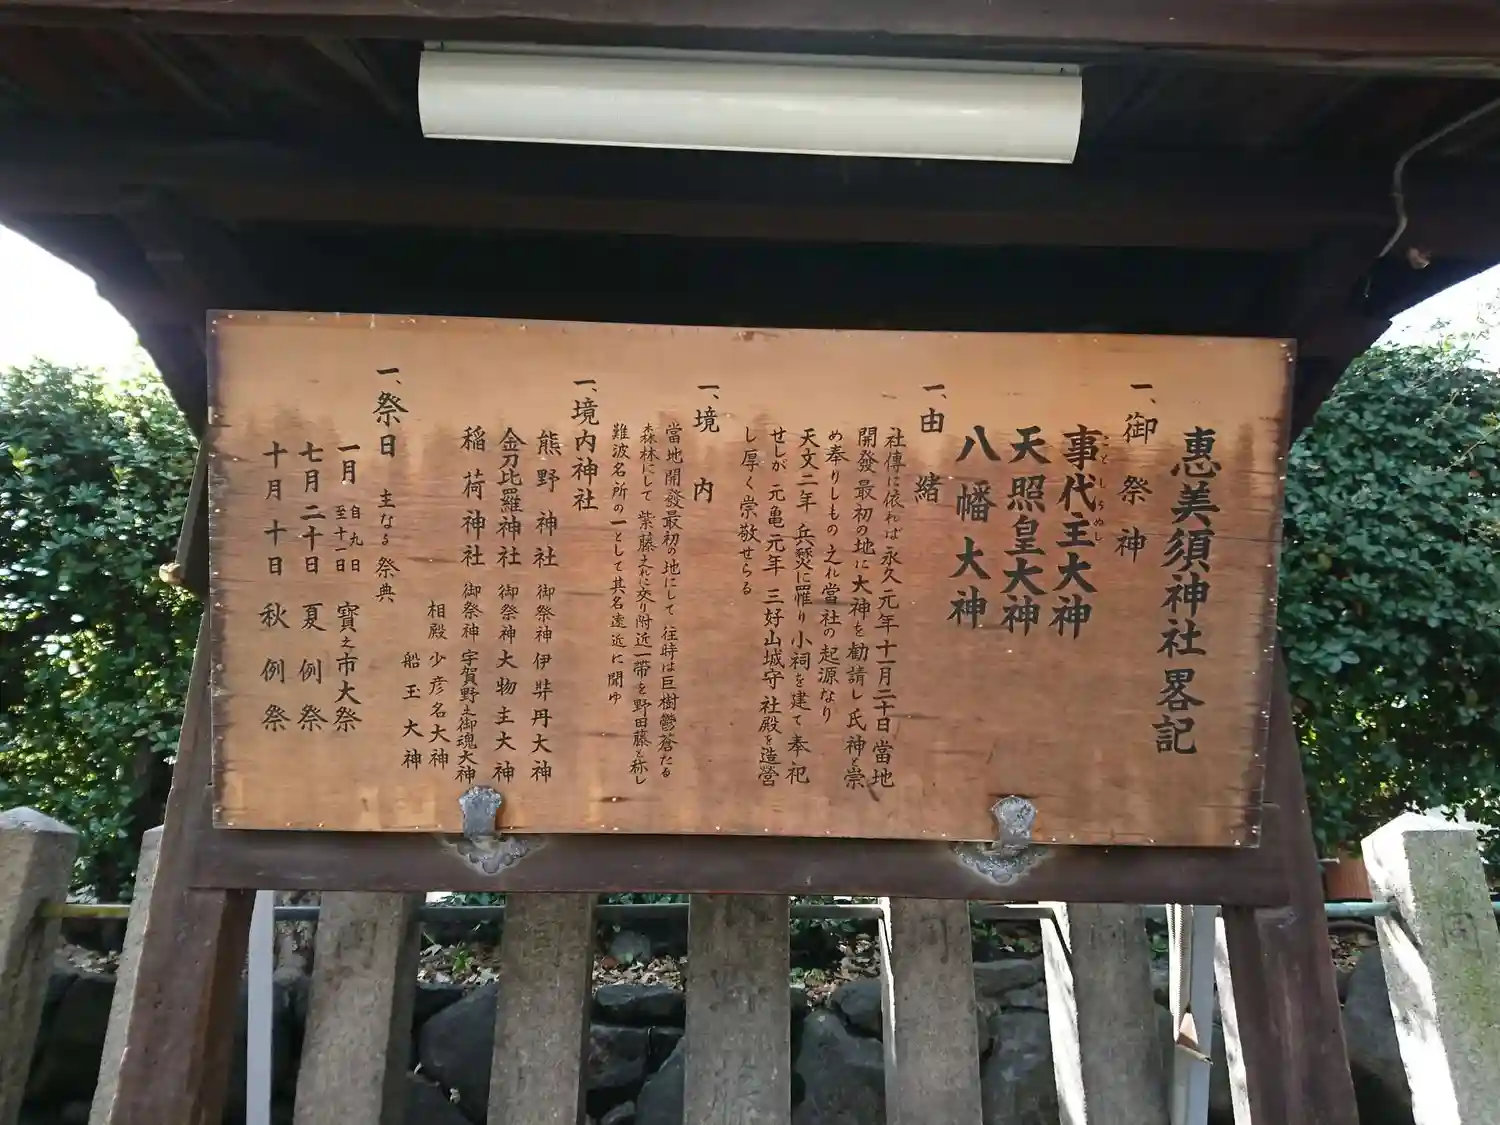 恵美須神社畧記
一、御祭神
事代主大神
ことしろぬし
天照皇大神
八幡大神
一、由緒
社傳に依れば永久元年十一月二十日當地
開發最初の地に大神を勧請し氏神と崇
め奉りしもの之れ當社の起源なり
天文二年 兵燹に罹り小祠を建て奉祀
せしが 元亀元年 三好山城守社殿を造営
し厚く崇敬せらる
一、境内
當地開發最初の地にして 往時は巨樹鬱蒼たる
森林にして 紫藤之れに交り附近一帯を野田藤と称し
難波名所の一として其名遠近に聞ゆ
一、境内神社
熊野神社 御祭神 伊弉丹大神
金刀比羅神社 御祭神 大物主大神
稲荷神社 御祭神 宇賀野之御魂大神
相殿 少彦名大神
船玉大神
一、祭日 主なる祭典
一月 自九日 至十一日 寶之市大祭
七月二十日 夏例祭
十月十日 秋例祭